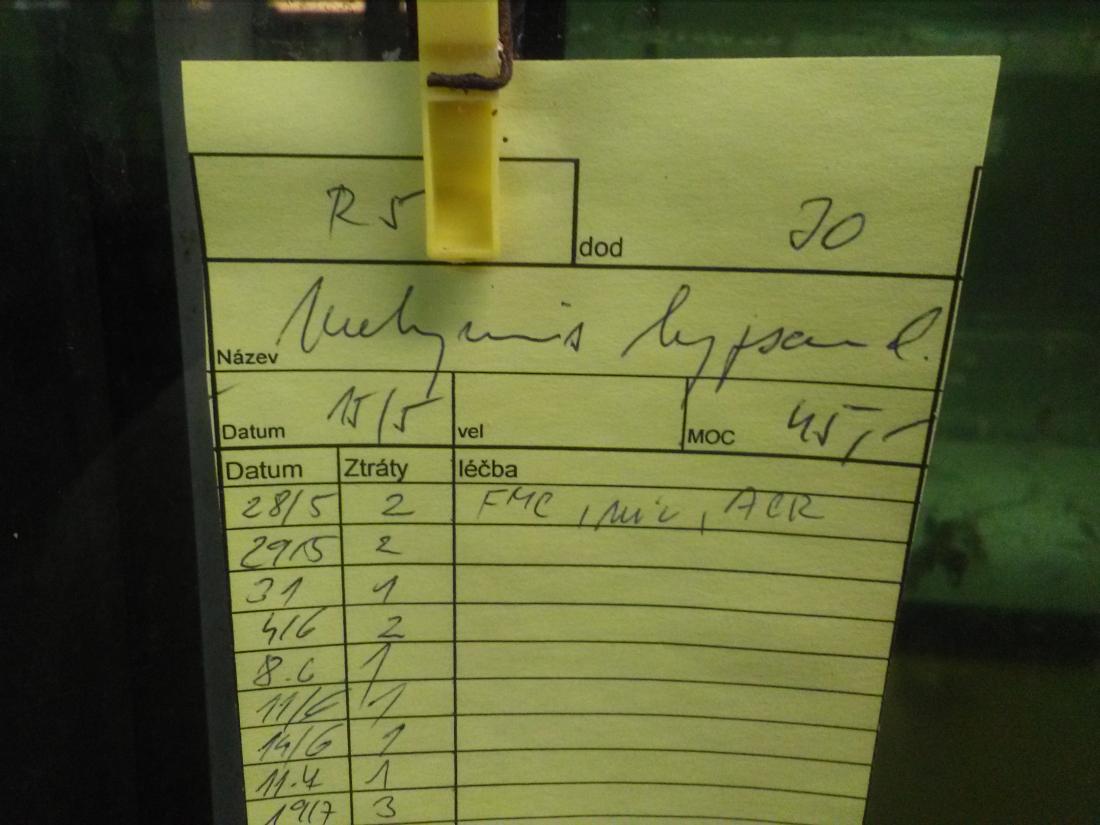 R 5
dod JO
Název
Datum 15/5 vel MOC 45,-
Datum Ztráty léčba
28/5 2 FMC, , ACR
29/5 2
31 1
4/6 2
8.6 1
11/6 1
14/6 1
11.7 1
19/7 3